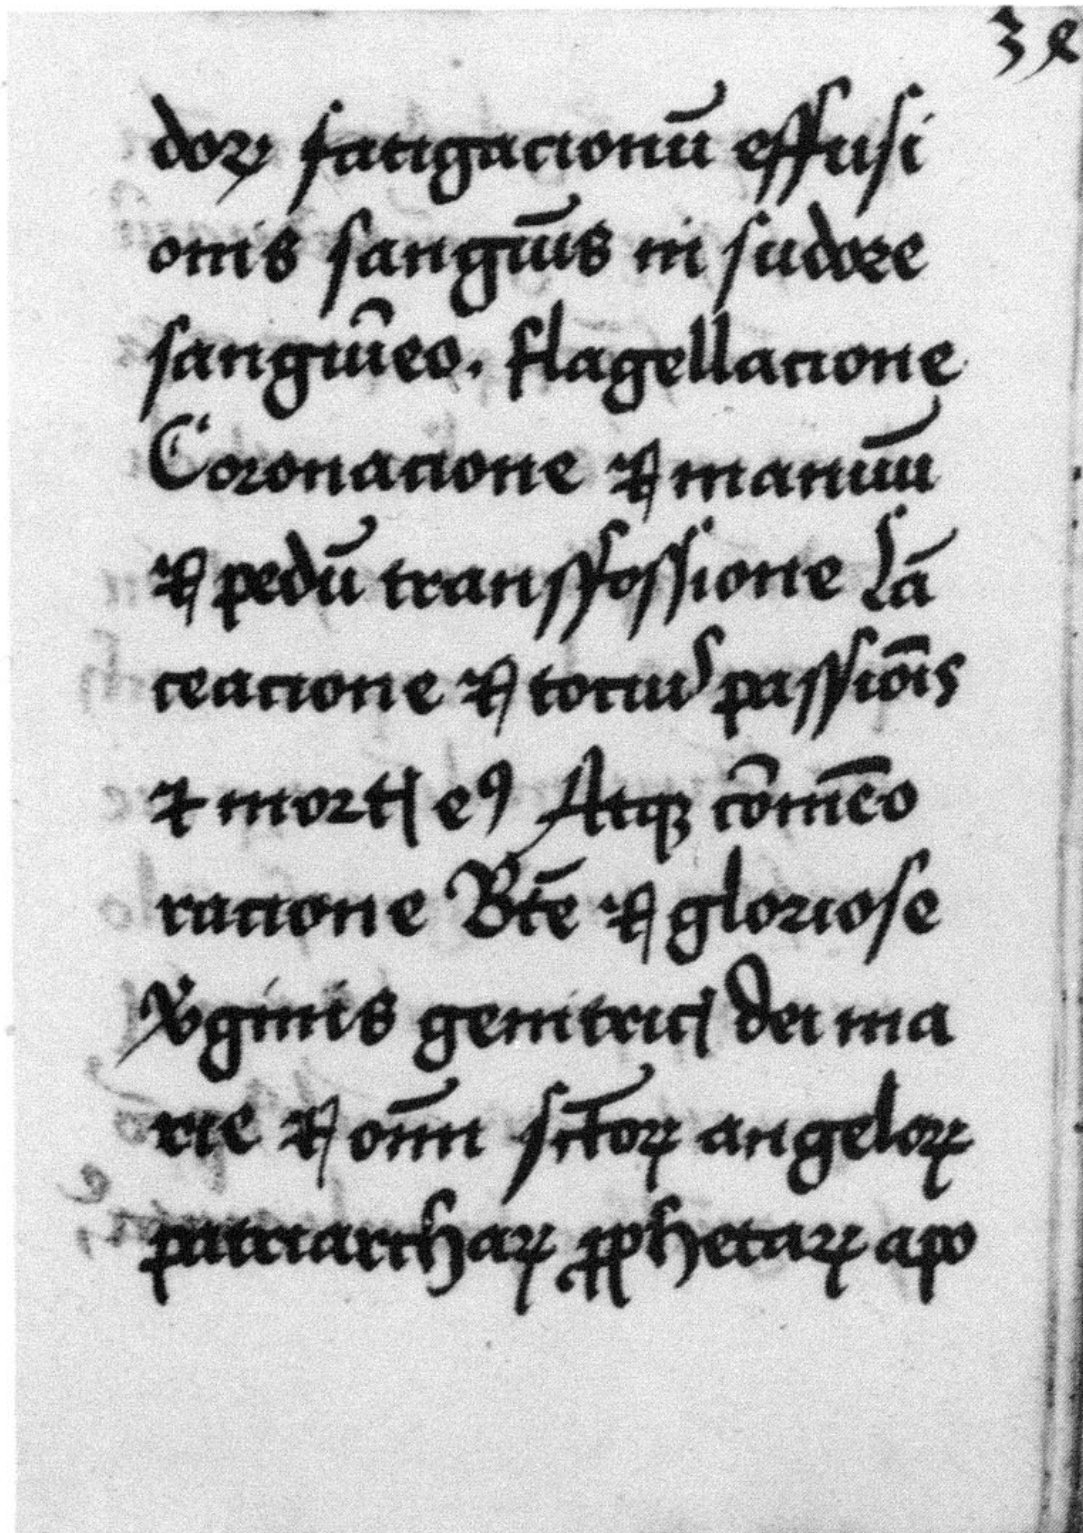 dorꝝ fatigacionū effusi
onis sanguīs in sudore
sanguīeo. flagellacione
Coronacione ⁊ manuū
⁊ pedū transfossione Lā
ceacione ⁊ tociuſ passiōis
⁊ mortꝭ eꝰ Atqꝫ cōmēo
racione Btē ⁊ gloriose
v̾ginis genitricꝭ dei ma
rie ⁊ oīm sc̄torꝝ angelorꝝ
patriarcharꝝ ꝓphetarꝝ apo